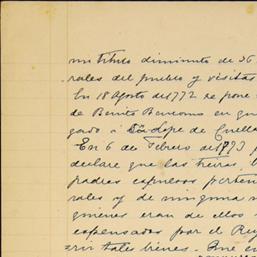 un titulo diminuto de 36
rales del pueblo y visitas
En 18 Agosto de 1772 se pone
de Benito
gado á Lope de Cuella
En 6 de Febrero de 1773
declare que las tierras
padres expulsos perten
rales y de ninguna
eran de ellos
expensados por el Rey
tales bienes.